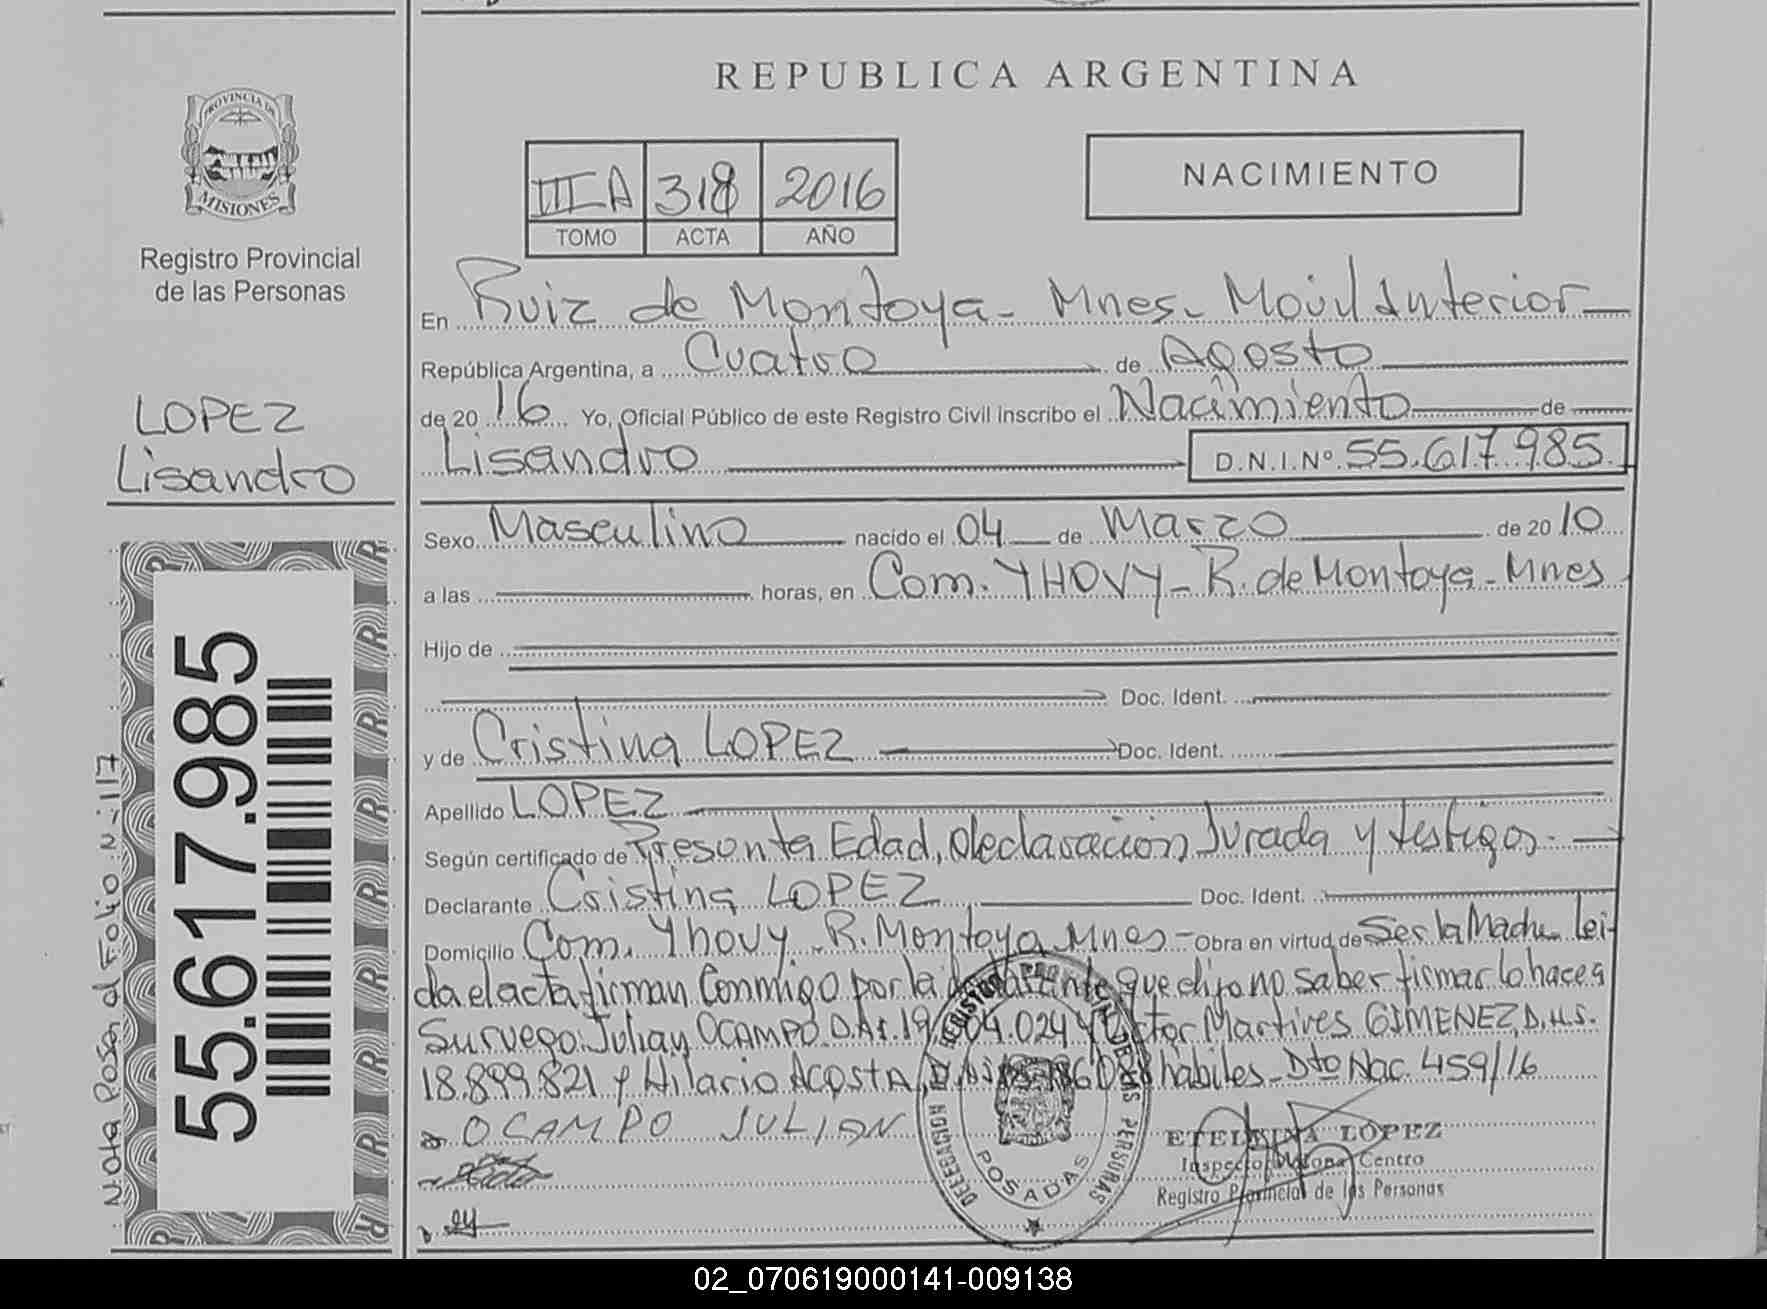 REPUBLICA ARGENTINA
PROVINCIA DE
MISIONES
Registro Provincial
de las Personas
LOPEZ
Lisandro
55.617.985
Nota Posa al Folio N-117
III A 318 2016
TOMO ACTA AÑO
NACIMIENTO
En Ruiz de Montoya - Mnes - Movil Interior
República Argentina, a Cuatro de Agosto
de 20 16 Yo, Oficial Público de este Registro Civil inscribo el Nacimiento de
Lisandro D.N.I.Nº 55.617.985
Sexo Masculino nacido el 04 de Marzo de 20 10
a las horas, en Com. YHOVY - R. de Montoya - Mnes
Hijo de
Doc. Ident.
y de Cristina LOPEZ Doc. Ident.
Apellido LOPEZ
Según certificado de Presunta Edad, Declaración Jurada y testigos.
Declarante Cristina LOPEZ Doc. Ident.
Domicilio Com. Yhovy R. Montoya Mnes - Obra en virtud de Ser la Madre Lei-
da el acta firman Conmigo por la declarante que dijo no saber firmar lo hace a
Su ruego Julian OCAMPO D.N.I. 19. 04.024 y Victor Martires GIMENEZ, D.N.I.
18.899.821 y Hilario ACOSTA, habiles - Dto Nac. 459/16
OCAMPO JULIAN
REGISTRO PROVINCIAL DE LAS PERSONAS
DELEGACION
POSADAS
ETELVINA LOPEZ
Inspector Zona Centro
Registro Provincial de las Personas
02_070619000141-009138